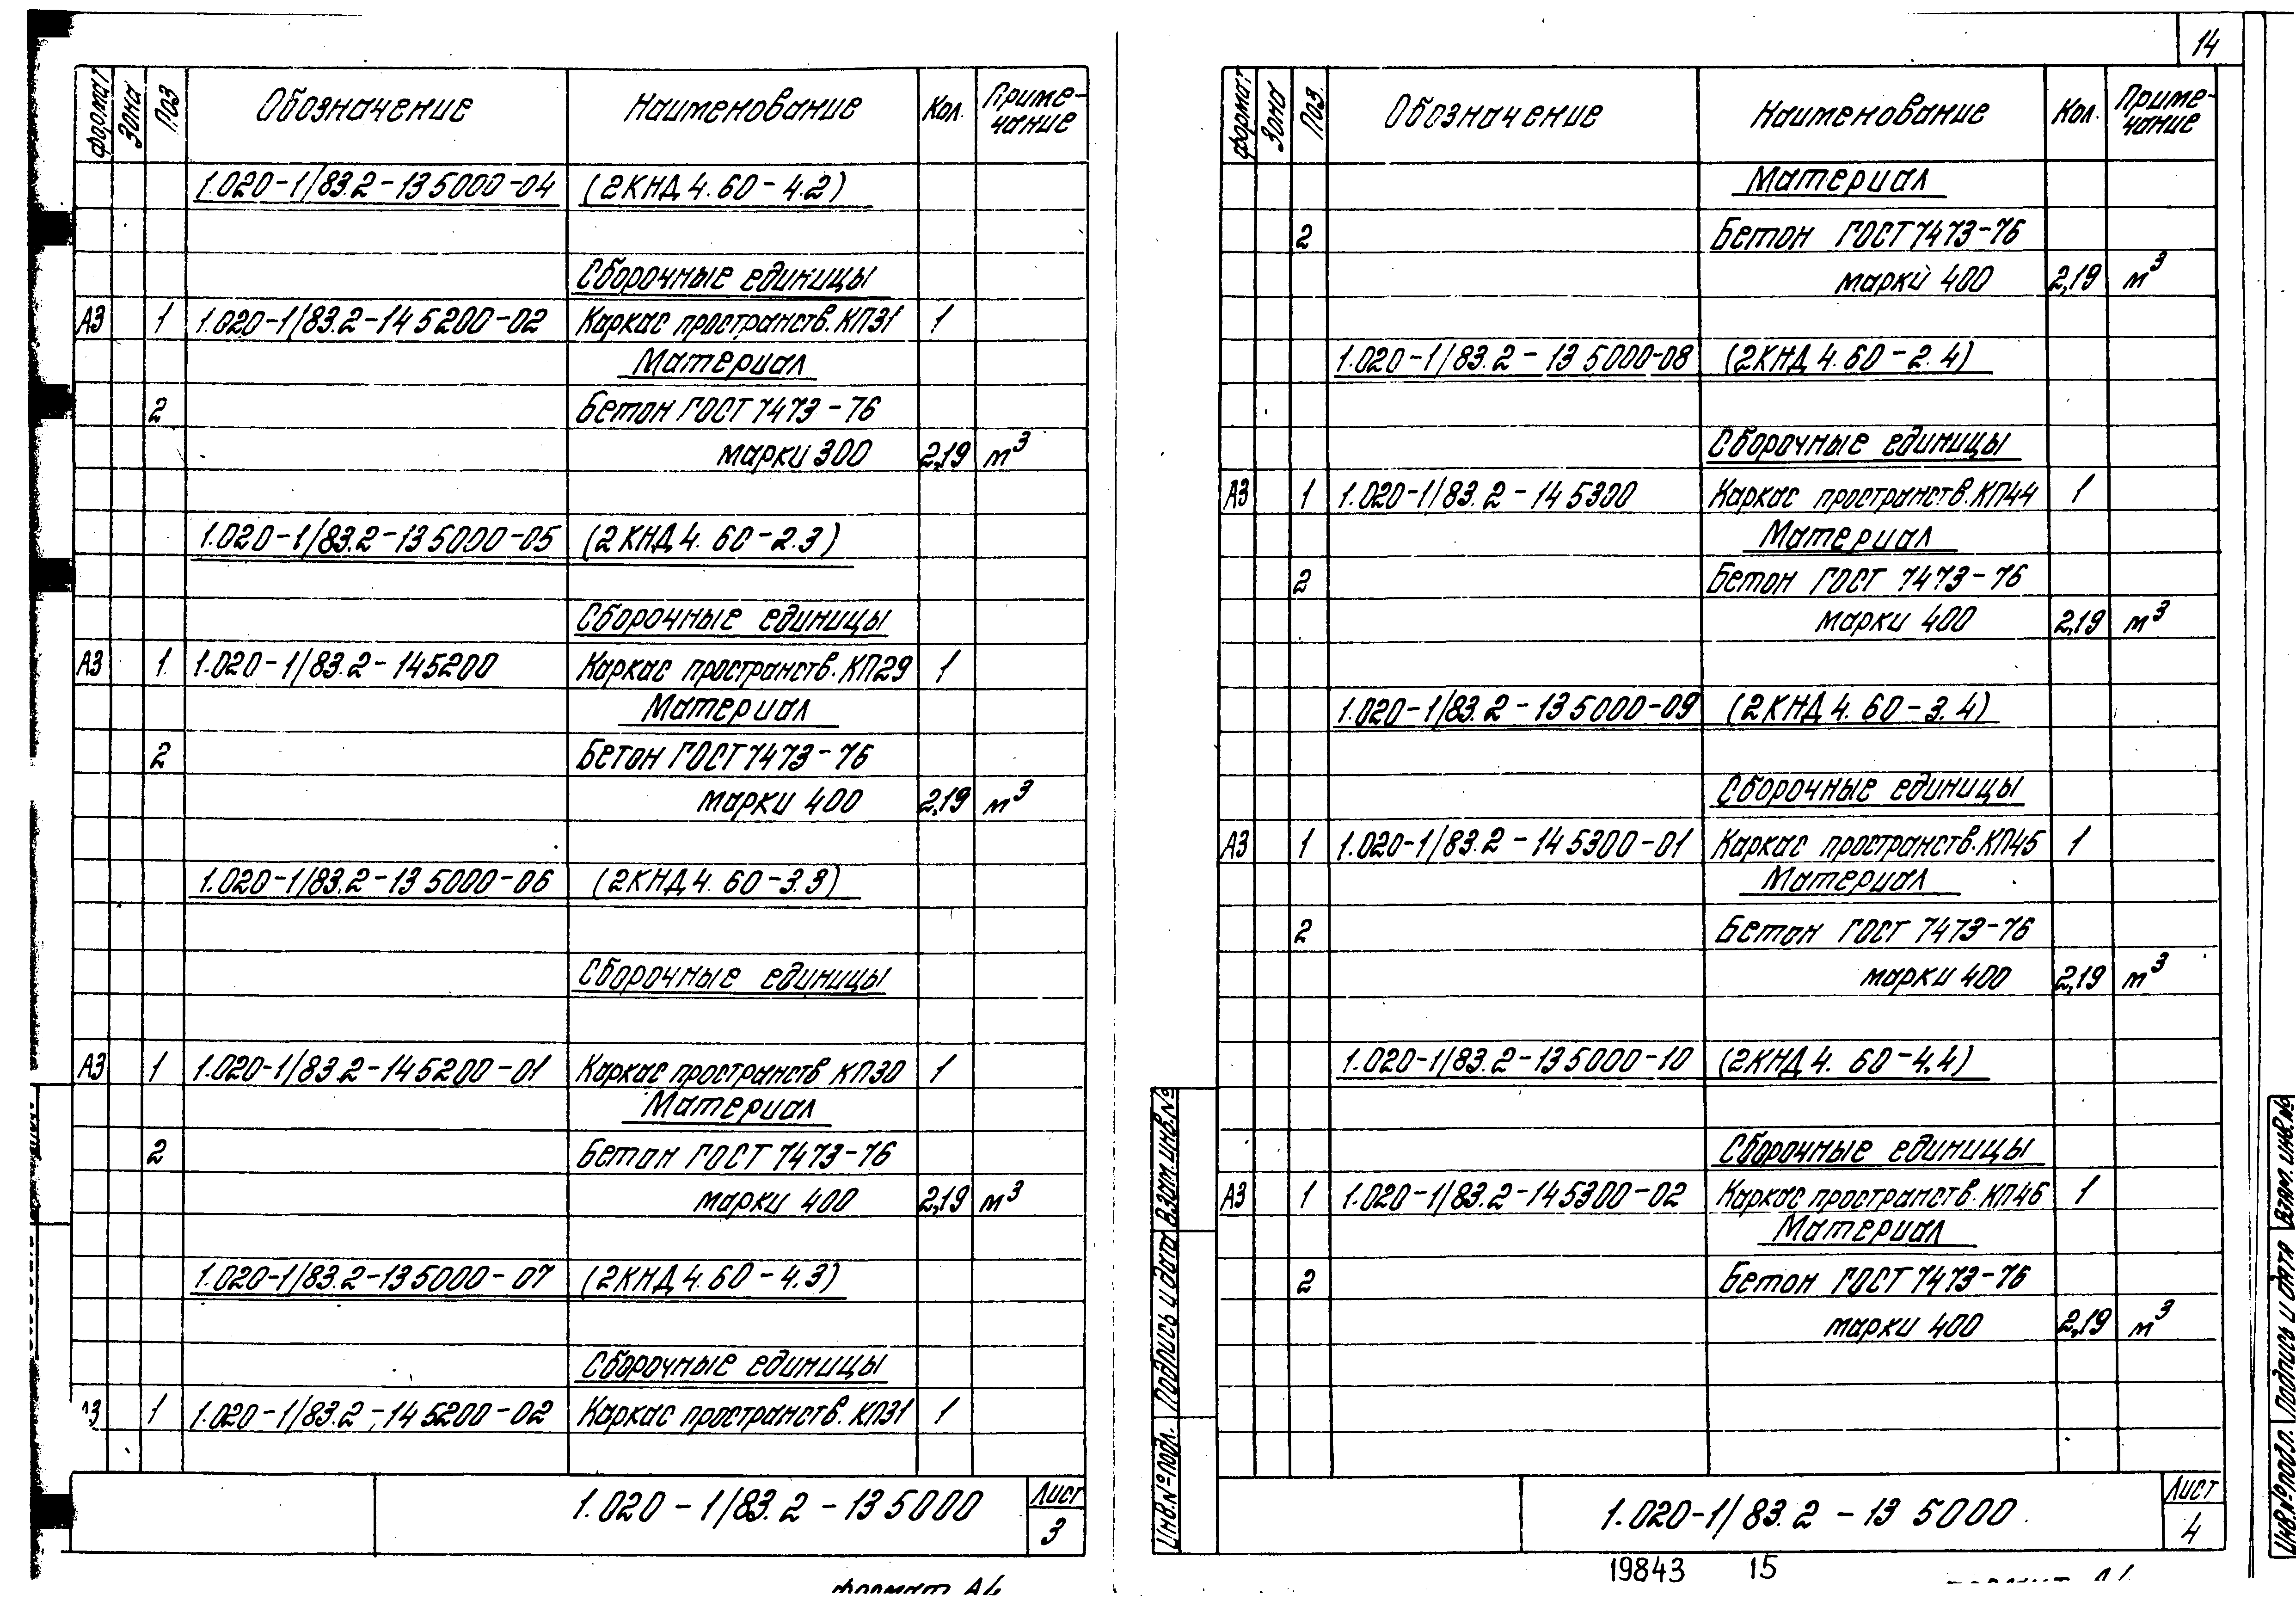 формат Зона Поз Обозначение Наименование Кол. Приме-
чание
1.020-1/83.2-13 5000-04 (2КНД 4.60-4.2)
Сборочные единицы
А3 1 1.020-1/83.2-14 5200-02 Каркас пространств. КП31 1
Материал
2 Бетон ГОСТ 7473-76
марки 300 2,19 м³
1.020-1/83.2-13 5000-05 (2КНД 4.60-2.3)
Сборочные единицы
А3 1 1.020-1/83.2-145200 Каркас пространств. КП29 1
Материал
2 Бетон ГОСТ 7473-76
марки 400 2,19 м³
1.020-1/83.2-13 5000-06 (2КНД 4.60-3.3)
Сборочные единицы
А3 1 1.020-1/83.2-145200-01 Каркас пространств КП30 1
Материал
2 Бетон ГОСТ 7473-76
марки 400 2,19 м³
1.020-1/83.2-13 5000-07 (2КНД 4.60-4.3)
Сборочные единицы
А3 1 1.020-1/83.2-14 5200-02 Каркас пространств. КП31 1
1.020-1/83.2-13 5000 Лист
3
формат А4
14
формат Зона Поз. Обозначение Наименование Кол. Приме-
чание
Материал
2 Бетон ГОСТ 7473-76
марки 400 2,19 м³
1.020-1/83.2-13 5000-08 (2КНД 4.60-2.4)
Сборочные единицы
А3 1 1.020-1/83.2-14 5300 Каркас пространств. КП44 1
Материал
2 Бетон ГОСТ 7473-76
марки 400 2,19 м³
1.020-1/83.2-13 5000-09 (2КНД 4.60-3.4)
Сборочные единицы
А3 1 1.020-1/83.2-14 5300-01 Каркас пространств. КП45 1
Материал
2 Бетон ГОСТ 7473-76
марки 400 2,19 м³
1.020-1/83.2-13 5000-10 (2КНД 4.60-4.4)
Сборочные единицы
А3 1 1.020-1/83.2-145300-02 Каркас пространств. КП46 1
Материал
2 Бетон ГОСТ 7473-76
марки 400 2,19 м³
1.020-1/83.2-13 5000 Лист
4
19843 15
Инв.№ подл. Подпись и дата Взам.инв.№
Инв.№ подл. Подпись и дата Взам.инв.№